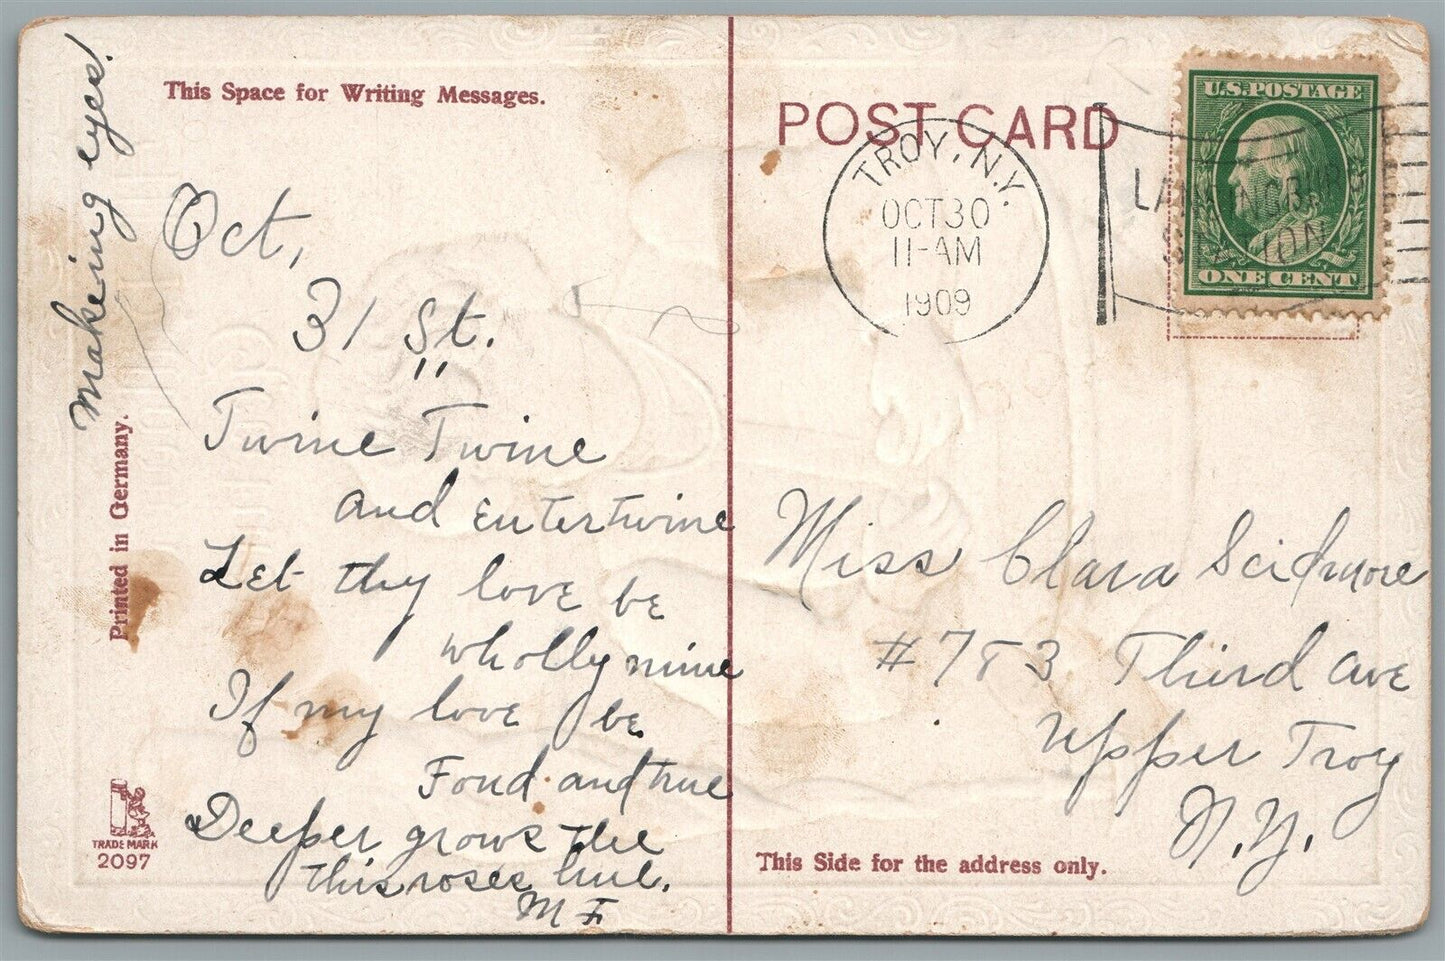 Makeing eyes.
This Space for Writing Messages.
Oct,
31 St.
Twine Twine
and entertwine
Let thy love be
wholly mine
If my love be
Fond and true
Deeper grows the
this roses hue.
M F
Printed in Germany.
TRADE MARK
2097
POST CARD
TROY, N.Y.
OCT 30
11-AM
1909
LANSINGBURG
STATION
U.S. POSTAGE
ONE CENT
Miss Clara Scidmore
#783 Third ave
Upper Troy
N.Y.
This Side for the address only.